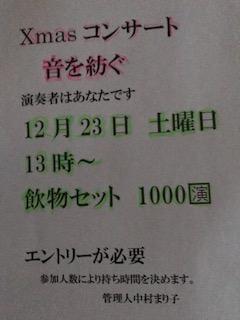 Xmas コンサート
音を紡ぐ
演奏者はあなたです
12月23日 土曜日
13時～
飲物セット 1000演
エントリーが必要
参加人数により持ち時間を決めます。
管理人中村まり子